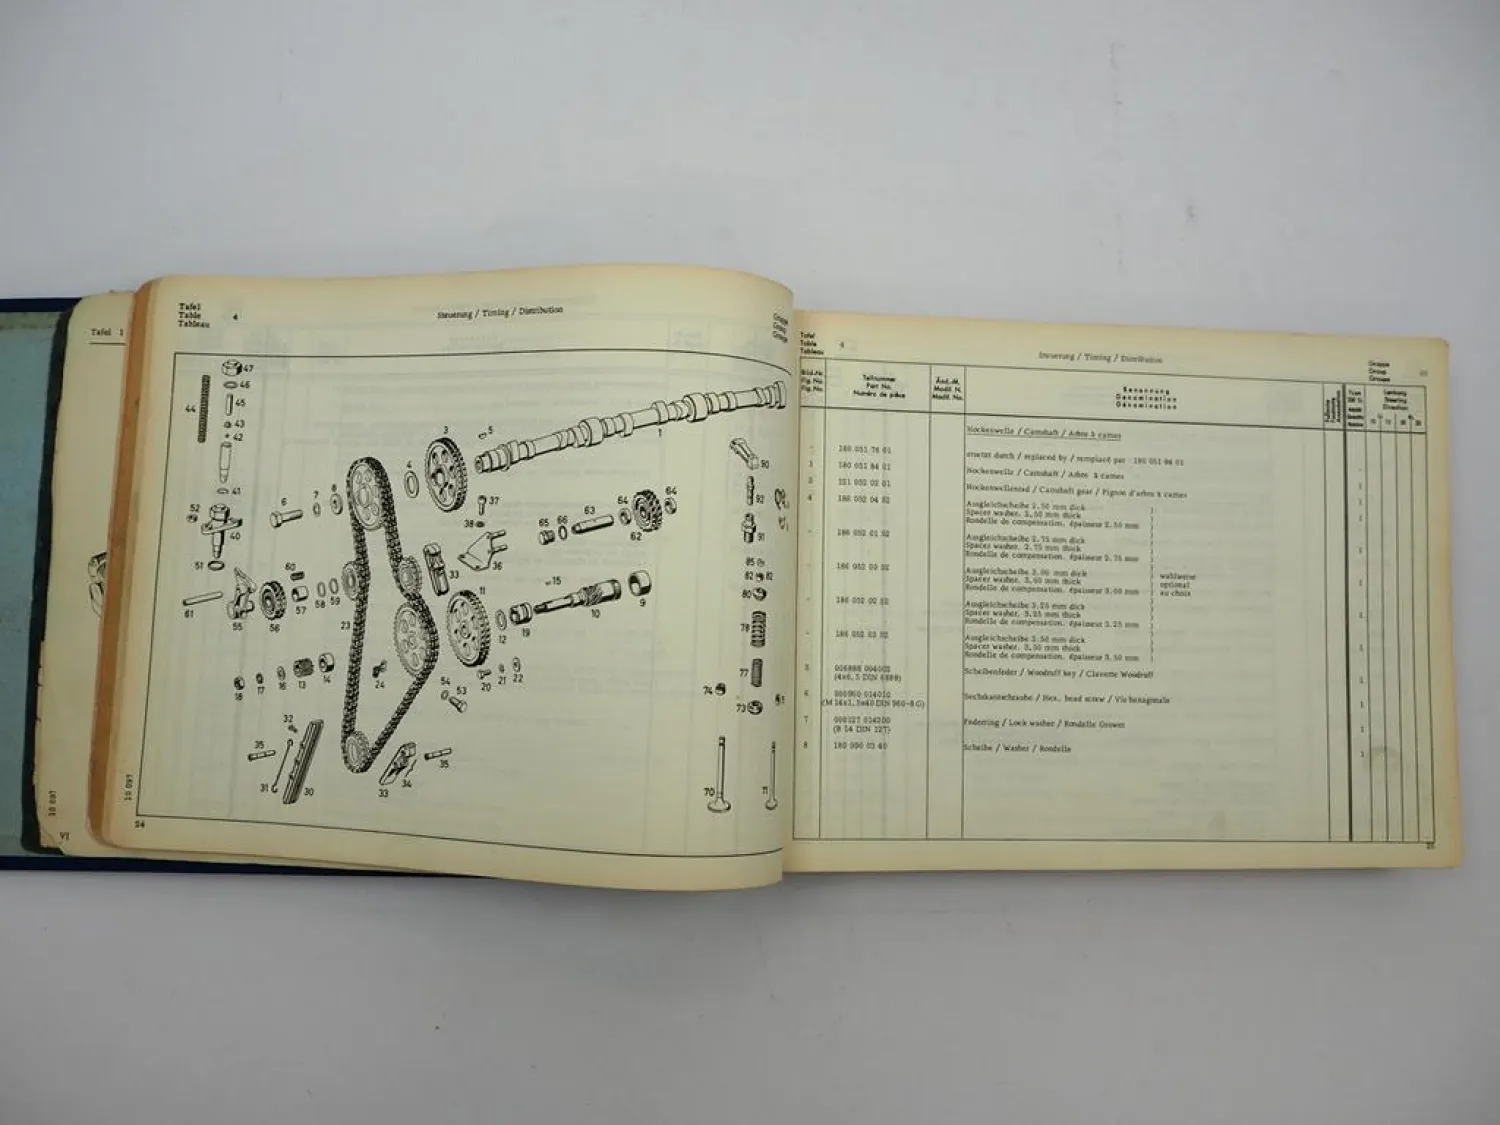 Tafel 1
10 097
VI
Tafel
Table 4
Tableau
Steuerung / Timing / Distribution
Gruppe
Group
Groupe
47
46
44
45
43
42
41
52
40
51
3
5
1
4
6
7
8
37
38
36
33
65
66
63
64
64
62
90
92
91
85
82
82
80
78
77
74
73
70
71
60
61
55
56
57
58
59
23
11
12
15
19
10
9
18
17
16
13
14
24
54
53
20
21
22
32
35
31
30
33
34
35
10 097
24
Tafel
Table 4
Tableau
Steuerung / Timing / Distribution
Gruppe
Group
Groupe
Bild-Nr.
Fig. No.
Fig. No.
Teilnummer
Part No.
Numéro de pièce
Änd.-M.
Modif. N.
Modif. No.
Benennung
Denomination
Dénomination
Lenkung
Steering
Direction
Nockenwelle / Camshaft / Arbre à cames
- 180 051 76 01 ersetzt durch / replaced by / remplacé par 180 051 84 01
1 180 051 84 01 Nockenwelle / Camshaft / Arbre à cames 1
3 121 052 02 01 Nockenwellenrad / Camshaft gear / Pignon d'arbre à cames 1
4 186 052 04 52 Ausgleichscheibe 2.50 mm dick
Spacer washer, 2.50 mm thick
Rondelle de compensation, épaisseur 2.50 mm
- 186 052 01 52 Ausgleichscheibe 2.75 mm dick
Spacer washer, 2.75 mm thick
Rondelle de compensation, épaisseur 2.75 mm
- 186 052 00 52 Ausgleichscheibe 3.00 mm dick wahlweise
Spacer washer, 3.00 mm thick optional
Rondelle de compensation, épaisseur 3.00 mm au choix
- 186 052 02 52 Ausgleichscheibe 3.25 mm dick
Spacer washer, 3.25 mm thick
Rondelle de compensation, épaisseur 3.25 mm
- 186 052 03 52 Ausgleichscheibe 3.50 mm dick
Spacer washer, 3.50 mm thick
Rondelle de compensation, épaisseur 3.50 mm
5 006888 004002 Scheibenfeder / Woodruff key / Clavette Woodruff 1
(4x6,5 DIN 6888)
6 000960 014010 Sechskantschraube / Hex. head screw / Vis hexagonale 1
(M 14x1,5x40 DIN 960-8 G)
7 000127 014200 Federring / Lock washer / Rondelle Grower 1
(B 14 DIN 127)
8 180 990 03 40 Scheibe / Washer / Rondelle 1
25